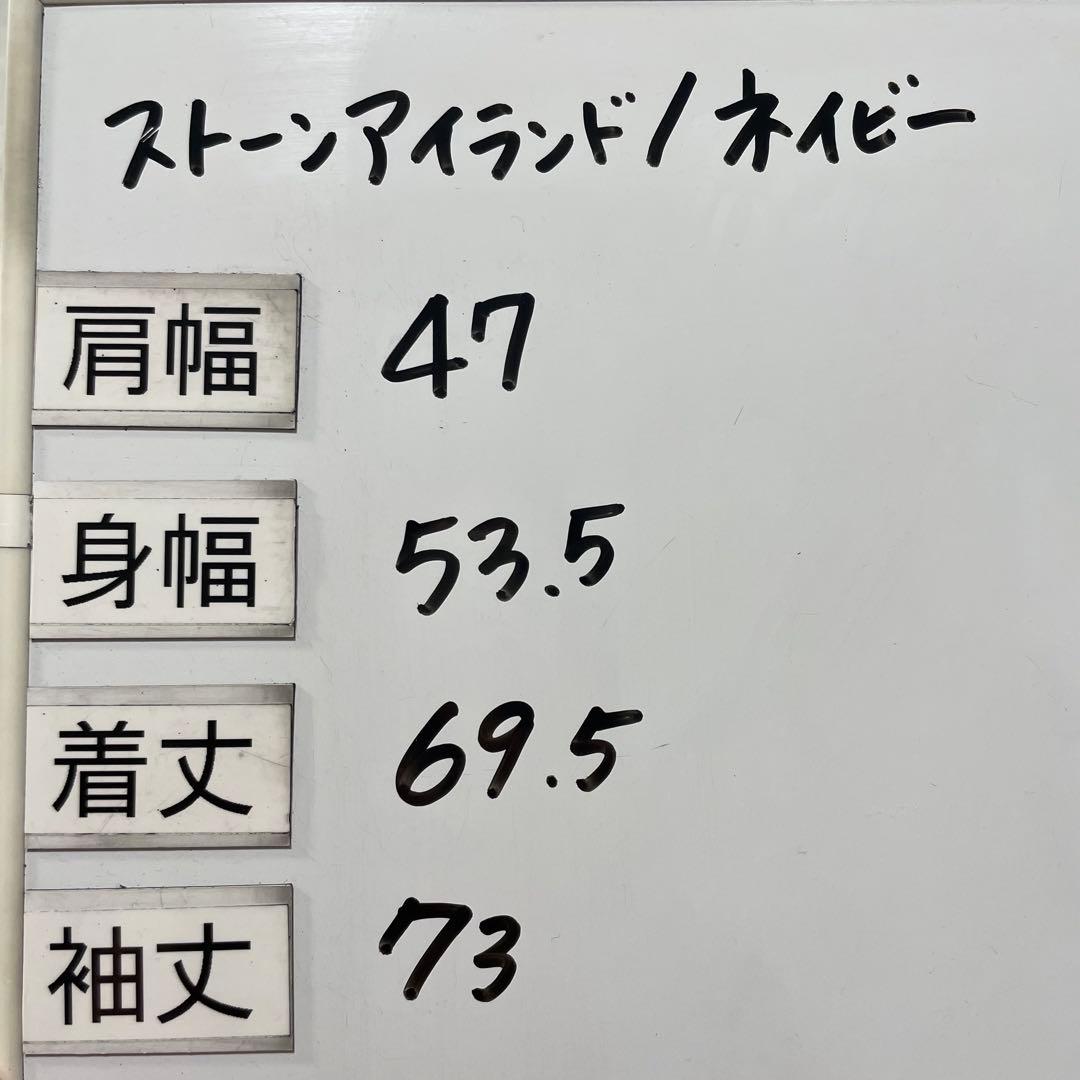 ストーンアイランド/ネイビー
肩幅 47
身幅 53.5
着丈 69.5
袖丈 73